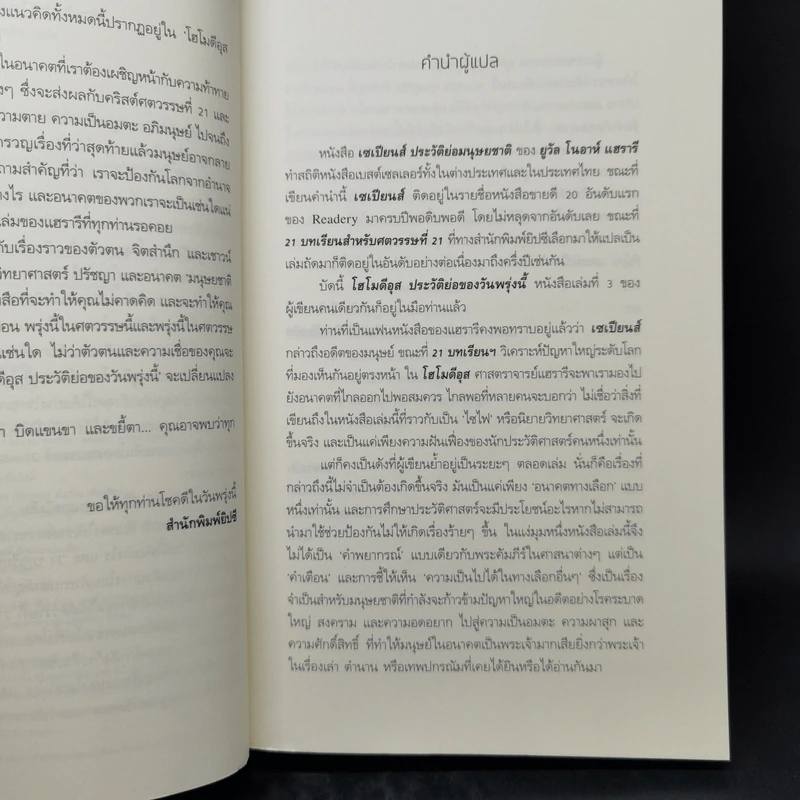 งแนวคิดทั้งหมดนี้ปรากฏอยู่ใน 'โฮโมดีอุส
ในอนาคตที่เราต้องเผชิญหน้ากับความท้าทาย
งๆ ซึ่งจะส่งผลกับคริสต์ศตวรรษที่ 21 และ
วามตาย ความเป็นอมตะ อภิมนุษย์ ไปจนถึง
ารวญเรื่องที่ว่าสุดท้ายแล้วมนุษย์อาจกลาย
ถามสำคัญที่ว่า เราจะป้องกันโลกจากอำนาจ
างไร และอนาคตของพวกเราจะเป็นเช่นใดแน่
เล่มของแฮรารีที่ทุกท่านรอคอย
กับเรื่องราวของตัวตน จิตสำนึก และเชาวน์
วิทยาศาสตร์ ปรัชญา และอนาคต 'มนุษยชาติ
สือที่จะทำให้คุณไม่คาดคิด และจะทำให้คุณ
อน พรุ่งนี้ในศตวรรษนี้และพรุ่งนี้ในศตวรรษ
แช่นใด ไม่ว่าตัวตนและความเชื่อของคุณจะ
ดีอุส ประวัติย่อของวันพรุ่งนี้' จะเปลี่ยนแปลง
า บิดแขนขา และขยี้ตา... คุณอาจพบว่าทุก
ขอให้ทุกท่านโชคดีในวันพรุ่งนี้
สำนักพิมพ์ยิปซี
คำนำผู้แปล
หนังสือ เซเปียนส์ ประวัติย่อมนุษยชาติ ของ ยูวัล โนอาห์ แฮรารี
ทำสถิติหนังสือเบสต์เซลเลอร์ทั้งในต่างประเทศและในประเทศไทย ขณะที่
เขียนคำนำนี้ เซเปียนส์ ติดอยู่ในรายชื่อหนังสือขายดี 20 อันดับแรก
ของ Readery มาครบปีพอดิบพอดี โดยไม่หลุดจากอันดับเลย ขณะที่
21 บทเรียนสำหรับศตวรรษที่ 21 ที่ทางสำนักพิมพ์ยิปซีเลือกมาให้แปลเป็น
เล่มถัดมาก็ติดอยู่ในอันดับอย่างต่อเนื่องมาถึงครึ่งปีเช่นกัน
บัดนี้ โฮโมดีอุส ประวัติย่อของวันพรุ่งนี้ หนังสือเล่มที่ 3 ของ
ผู้เขียนคนเดียวกันก็อยู่ในมือท่านแล้ว
ท่านที่เป็นแฟนหนังสือของแฮรารีคงพอทราบอยู่แล้วว่า เซเปียนส์
กล่าวถึงอดีตของมนุษย์ ขณะที่ 21 บทเรียนฯ วิเคราะห์ปัญหาใหญ่ระดับโลก
ที่มองเห็นกันอยู่ตรงหน้า ใน โฮโมดีอุส ศาสตราจารย์แฮรารีจะพาเรามองไป
ยังอนาคตที่ไกลออกไปพอสมควร ไกลพอที่หลายคนจะบอกว่า ไม่เชื่อว่าสิ่งที่
เขียนถึงในหนังสือเล่มนี้ที่ราวกับเป็น 'ไซไฟ' หรือนิยายวิทยาศาสตร์ จะเกิด
ขึ้นจริง และเป็นแค่เพียงความฝันเฟื่องของนักประวัติศาสตร์คนหนึ่งเท่านั้น
แต่ก็คงเป็นดังที่ผู้เขียนย้ำอยู่เป็นระยะๆ ตลอดเล่ม นั่นก็คือเรื่องที่
กล่าวถึงนี้ไม่จำเป็นต้องเกิดขึ้นจริง มันเป็นแค่เพียง 'อนาคตทางเลือก' แบบ
หนึ่งเท่านั้น และการศึกษาประวัติศาสตร์จะมีประโยชน์อะไรหากไม่สามารถ
นำมาใช้ช่วยป้องกันไม่ให้เกิดเรื่องร้ายๆ ขึ้น ในแง่มุมหนึ่งหนังสือเล่มนี้จึง
ไม่ได้เป็น 'คำพยากรณ์' แบบเดียวกับพระคัมภีร์ในศาสนาต่างๆ แต่เป็น
'คำเตือน' และการชี้ให้เห็น 'ความเป็นไปได้ในทางเลือกอื่นๆ' ซึ่งเป็นเรื่อง
จำเป็นสำหรับมนุษยชาติที่กำลังจะก้าวข้ามปัญหาใหญ่ในอดีตอย่างโรคระบาด
ใหญ่ สงคราม และความอดอยาก ไปสู่ความเป็นอมตะ ความผาสุก และ
ความศักดิ์สิทธิ์ ที่ทำให้มนุษย์ในอนาคตเป็นพระเจ้ามากเสียยิ่งกว่าพระเจ้า
ในเรื่องเล่า ตำนาน หรือเทพปกรณัมที่เคยได้ยินหรือได้อ่านกันมา